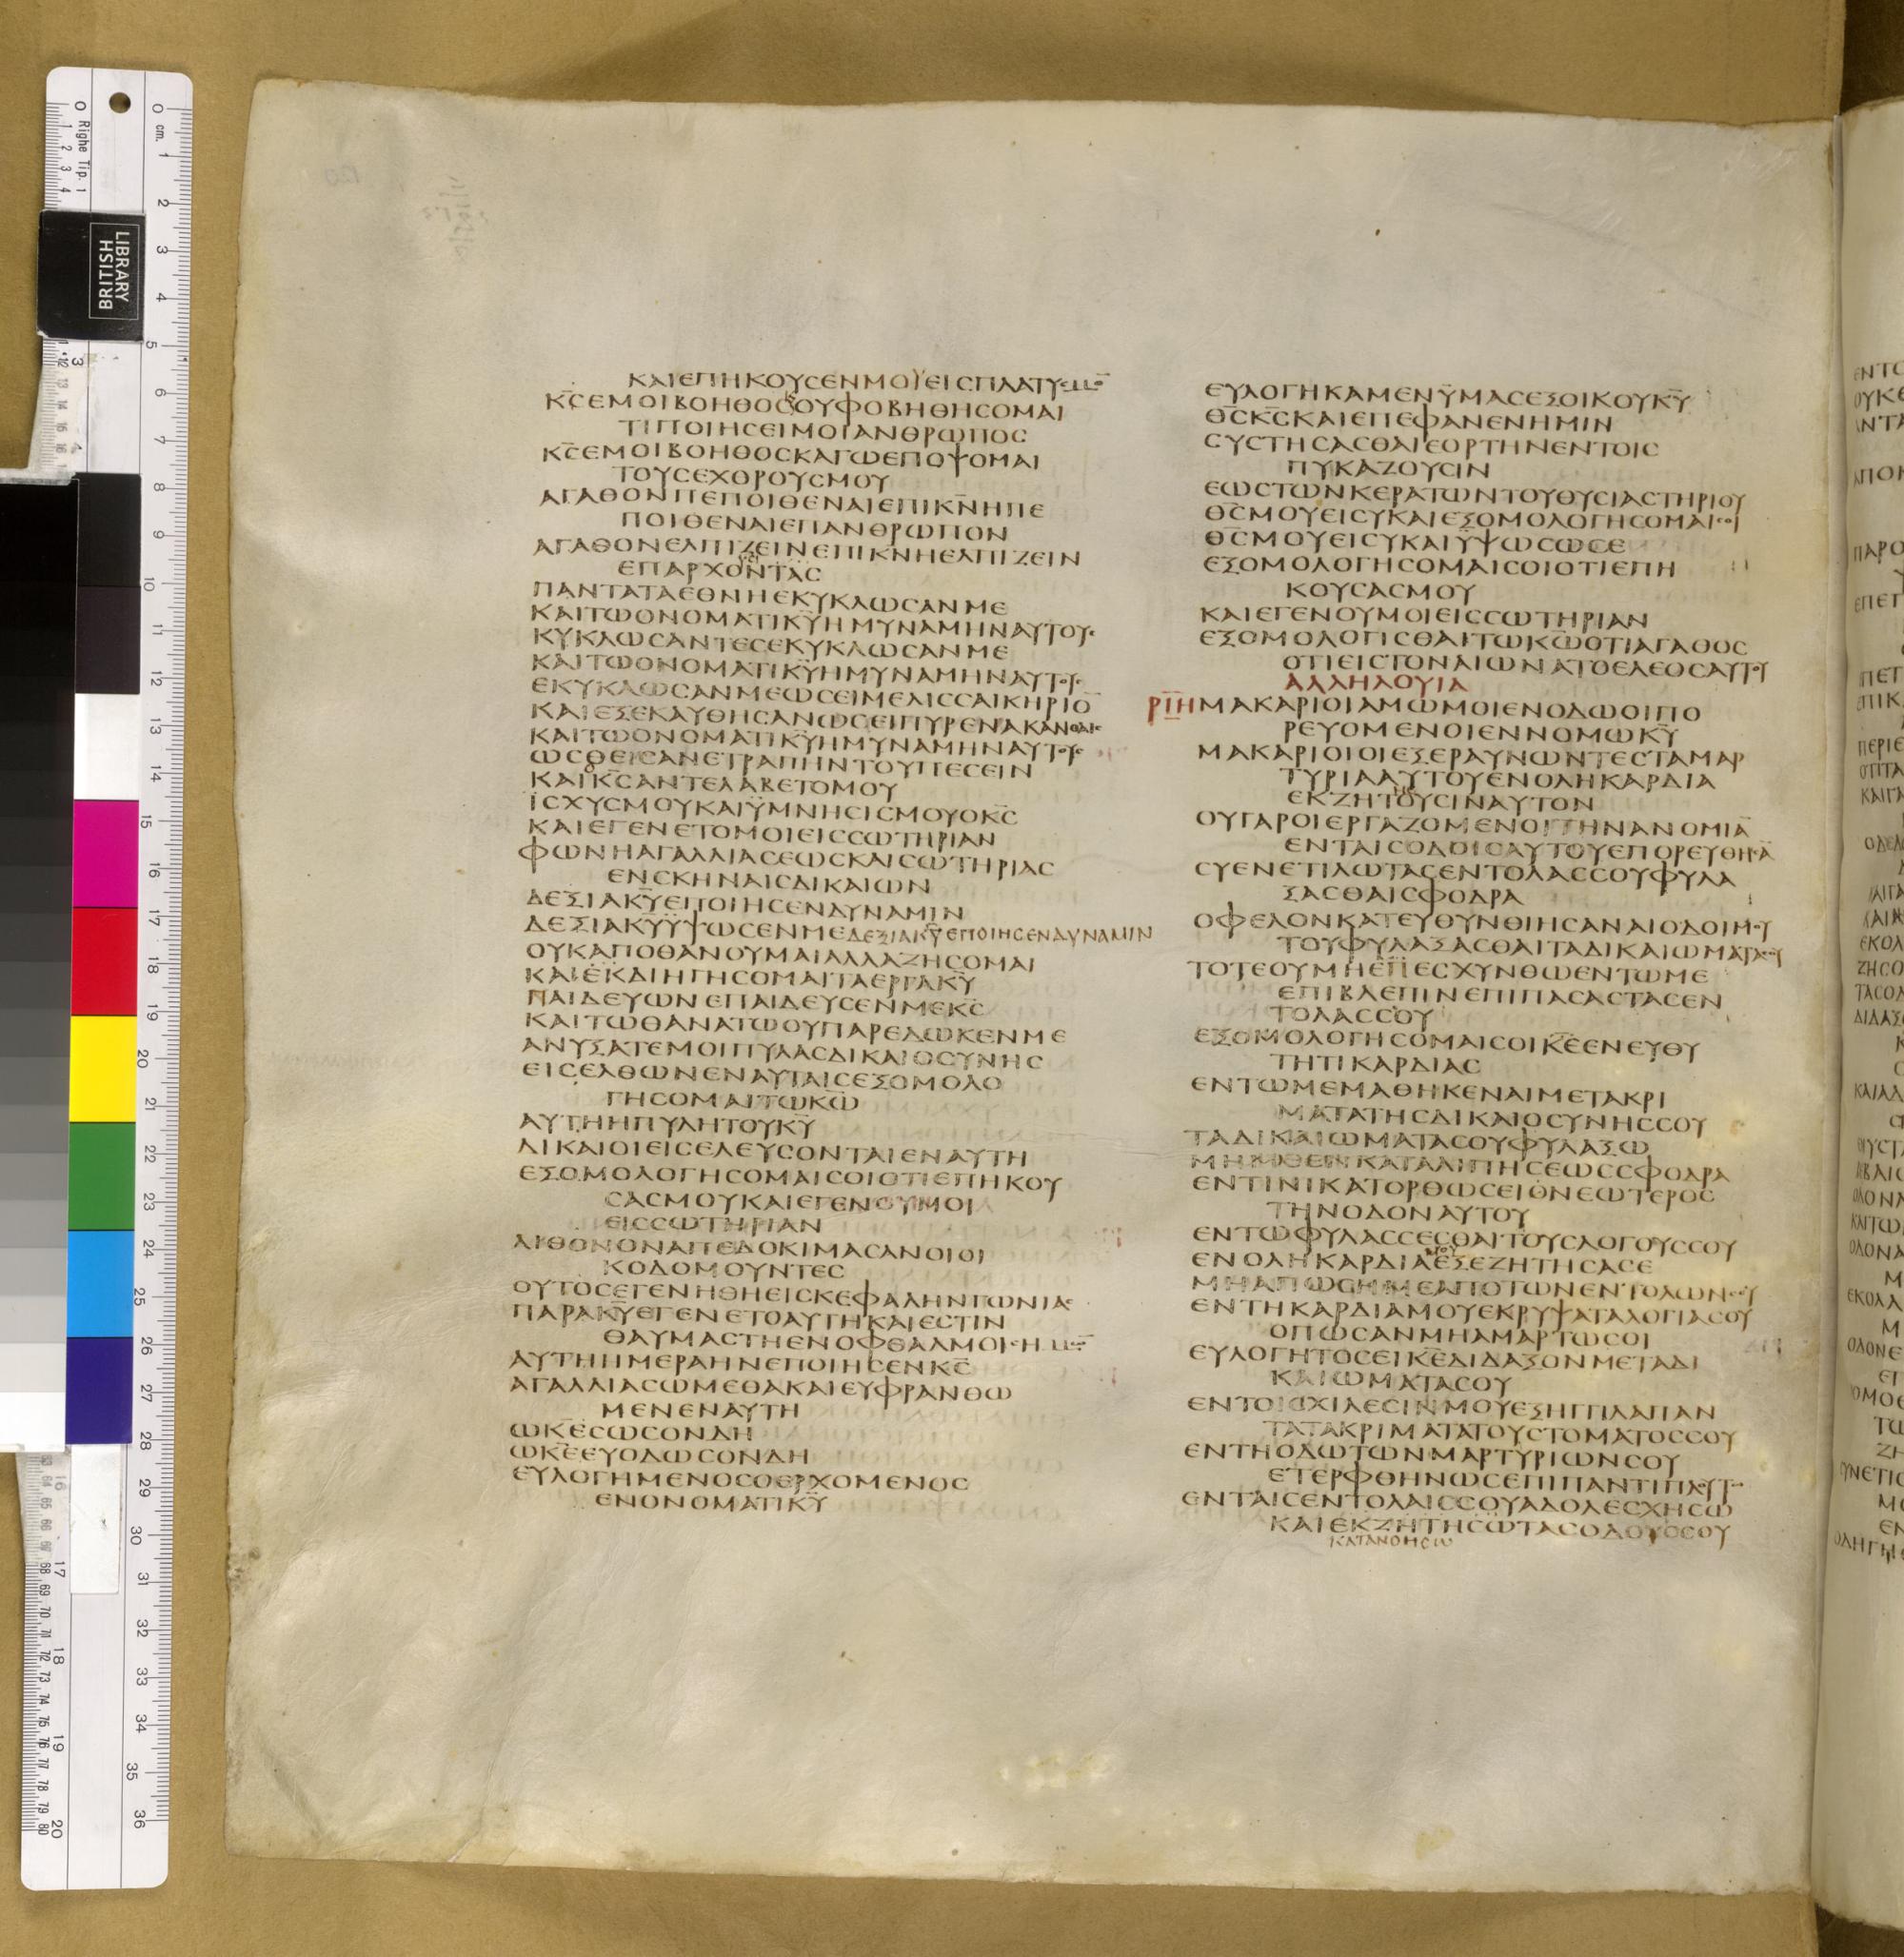 ΚΑΙΕΠΗΚΟΥCΕΝΜΟΥΕΙCΠΛΑΤΥ
ΚC̅ΕΜΟΙΒΟΗΘΟCΟΥΦΟΒΗΘΗCΟΜΑΙ
ΤΙΠΟΙΗCΕΙΜΟΙΑΝΘΡΩΠΟC
ΚC̅ΕΜΟΙΒΟΗΘΟCΚΑΓΩΕΠΟΨΟΜΑΙ
ΤΟΥCΕΧΘΡΟΥCΜΟΥ
ΑΓΑΘΟΝΠΕΠΟΙΘΕΝΑΙΕΠΙΚΝ̅ΗΠΕ
ΠΟΙΘΕΝΑΙΕΠΑΝΘΡΩΠΟΝ
ΑΓΑΘΟΝΕΛΠΙΖΕΙΝΕΠΙΚΝ̅ΗΕΛΠΙΖΕΙΝ
ΕΠΑΡΧΟΝΤΑC
ΠΑΝΤΑΤΑΕΘΝΗΕΚΥΚΛΩCΑΝΜΕ
ΚΑΙΤΩΟΝΟΜΑΤΙΚΥ̅ΗΜΥΝΑΜΗΝΑΥΤΟΥC
ΚΥΚΛΩCΑΝΤΕCΕΚΥΚΛΩCΑΝΜΕ
ΚΑΙΤΩΟΝΟΜΑΤΙΚΥ̅ΗΜΥΝΑΜΗΝΑΥΤΟΥC
ΕΚΥΚΛΩCΑΝΜΕΩCΕΙΜΕΛΙCCΑΙΚΗΡΙΟ̅
ΚΑΙΕΞΕΚΑΥΘΗCΑΝΩCΕΙΠΥΡΕΝΑΚΑΝΘΑΙC
ΚΑΙΤΩΟΝΟΜΑΤΙΚΥ̅ΗΜΥΝΑΜΗΝΑΥΤΟΥC
ΩCΘΕΙCΑΝΕΤΡΑΠΗΝΤΟΥΠΕCΕΙΝ
ΚΑΙΚC̅ΑΝΤΕΛΑΒΕΤΟΜΟΥ
ΪCΧΥCΜΟΥΚΑΙΫΜΝΗCΙCΜΟΥΟΚC̅
ΚΑΙΕΓΕΝΕΤΟΜΟΙΕΙCCΩΤΗΡΙΑΝ
ΦΩΝΗΑΓΑΛΛΙΑCΕΩCΚΑΙCΩΤΗΡΙΑC
ΕΝCΚΗΝΑΙCΔΙΚΑΙΩΝ
ΔΕΞΙΑΚΥ̅ΕΠΟΙΗCΕΝΔΥΝΑΜΙΝ
ΔΕΞΙΑΚΥ̅ΫΨΩCΕΝΜΕΔΕΞΙΑΚΥ̅ΕΠΟΙΗCΕΝΔΥΝΑΜΙΝ
ΟΥΚΑΠΟΘΑΝΟΥΜΑΙΑΛΛΑΖΗCΟΜΑΙ
ΚΑΙΕΚΔΙΗΓΗCΟΜΑΙΤΑΕΡΓΑΚΥ̅
ΠΑΙΔΕΥΩΝΕΠΑΙΔΕΥCΕΝΜΕΚC̅
ΚΑΙΤΩΘΑΝΑΤΩΟΥΠΑΡΕΔΩΚΕΝΜΕ
ΑΝΥΞΑΤΕΜΟΙΠΥΛΑCΔΙΚΑΙΟCΥΝΗC
ΕΙCΕΛΘΩΝΕΝΑΥΤΑΙCΕΞΟΜΟΛΟ
ΓΗCΟΜΑΙΤΩΚΩ̅
ΑΥΤΗΗΠΥΛΗΤΟΥΚΥ̅
ΔΙΚΑΙΟΙΕΙCΕΛΕΥCΟΝΤΑΙΕΝΑΥΤΗ
ΕΞΟΜΟΛΟΓΗCΟΜΑΙCΟΙΟΤΙΕΠΗΚΟΥ
CΑCΜΟΥΚΑΙΕΓΕΝΟΥΜΟΙ
ΕΙCCΩΤΗΡΙΑΝ
ΛΙΘΟΝΟΝΑΠΕΔΟΚΙΜΑCΑΝΟΙΟΙ
ΚΟΔΟΜΟΥΝΤΕC
ΟΥΤΟCΕΓΕΝΗΘΗΕΙCΚΕΦΑΛΗΝΓΩΝΙΑC
ΠΑΡΑΚΥ̅ΕΓΕΝΕΤΟΑΥΤΗΚΑΙΕCΤΙΝ
ΘΑΥΜΑCΤΗΕΝΟΦΘΑΛΜΟΙCΗΜΩ̅
ΑΥΤΗΗΜΕΡΑΗΝΕΠΟΙΗCΕΝΚC̅
ΑΓΑΛΛΙΑCΩΜΕΘΑΚΑΙΕΥΦΡΑΝΘΩ
ΜΕΝΕΝΑΥΤΗ
ΩΚΕ̅CΩCΟΝΔΗ
ΩΚΕ̅ΕΥΟΔΩCΟΝΔΗ
ΕΥΛΟΓΗΜΕΝΟCΟΕΡΧΟΜΕΝΟC
ΕΝΟΝΟΜΑΤΙΚΥ̅
ΕΥΛΟΓΗΚΑΜΕΝΫΜΑCΕΞΟΙΚΟΥΚΥ̅
ΘC̅ΚC̅ΚΑΙΕΠΕΦΑΝΕΝΗΜΙΝ
CΥCΤΗCΑCΘΑΙΕΟΡΤΗΝΕΝΤΟΙC
ΠΥΚΑΖΟΥCΙΝ
ΕΩCΤΩΝΚΕΡΑΤΩΝΤΟΥΘΥCΙΑCΤΗΡΙΟΥ
ΘC̅ΜΟΥΕΙCΥΚΑΙΕΞΟΜΟΛΟΓΗCΟΜΑΙCΟΙ
ΘC̅ΜΟΥΕΙCΥΚΑΙΫΨΩCΩCΕ
ΕΞΟΜΟΛΟΓΗCΟΜΑΙCΟΙΟΤΙΕΠΗ
ΚΟΥCΑCΜΟΥ
ΚΑΙΕΓΕΝΟΥΜΟΙΕΙCCΩΤΗΡΙΑΝ
ΕΞΟΜΟΛΟΓΙCΘΑΙΤΩΚΩ̅ΟΤΙΑΓΑΘΟC
ΟΤΙΕΙCΤΟΝΑΙΩΝΑΤΟΕΛΕΟCΑΥΤΟΥ
ΑΛΛΗΛΟΥΙΑ
ΡΙΗ̅ΜΑΚΑΡΙΟΙΑΜΩΜΟΙΕΝΟΔΩΟΙΠΟ
ΡΕΥΟΜΕΝΟΙΕΝΝΟΜΩΚΥ̅
ΜΑΚΑΡΙΟΙΟΙΕΞΕΡΑΥΝΩΝΤΕCΤΑΜΑΡ
ΤΥΡΙΑΑΥΤΟΥΕΝΟΛΗΚΑΡΔΙΑ
ΕΚΖΗΤΟΥCΙΝΑΥΤΟΝ
ΟΥΓΑΡΟΙΕΡΓΑΖΟΜΕΝΟΙΤΗΝΑΝΟΜΙΑ̅
ΕΝΤΑΙCΟΔΟΙCΑΥΤΟΥΕΠΟΡΕΥΘΗCΑ̅
CΥΕΝΕΤΙΛΩΤΑCΕΝΤΟΛΑCCΟΥΦΥΛΑ
ΞΑCΘΑΙCΦΟΔΡΑ
ΟΦΕΛΟΝΚΑΤΕΥΘΥΝΘΙΗCΑΝΑΙΟΔΟΙΜΟΥ
ΤΟΥΦΥΛΑΞΑCΘΑΙΤΑΔΙΚΑΙΩΜΑΤΑCΟΥ
ΤΟΤΕΟΥΜΗΕΠΕCΧΥΝΘΩΕΝΤΩΜΕ
ΕΠΙΒΛΕΠΙΝΕΠΙΠΑCΑCΤΑCΕΝ
ΤΟΛΑCCΟΥ
ΕΞΟΜΟΛΟΓΗCΟΜΑΙCΟΙΚΕ̅ΕΝΕΥΘΥ
ΤΗΤΙΚΑΡΔΙΑC
ΕΝΤΩΜΕΜΑΘΗΚΕΝΑΙΜΕΤΑΚΡΙ
ΜΑΤΑΤΗCΔΙΚΑΙΟCΥΝΗCCΟΥ
ΤΑΔΙΚΑΙΩΜΑΤΑCΟΥΦΥΛΑΞΩ
ΚΑΤΑΛΙΠΗCΕΩCCΦΟΔΡΑ
ΕΝΤΙΝΙΚΑΤΟΡΘΩCΕΙΟΝΕΩΤΕΡΟC
ΤΗΝΟΔΟΝΑΥΤΟΥ
ΕΝΤΩΦΥΛΑCCΕCΘΑΙΤΟΥCΛΟΓΟΥCCΟΥ
ΕΝΟΛΗΚΑΡΔΙΑΜΟΥΕΞΕΖΗΤΗCΑCΕ
ΜΗΑΠΩCΗΜΕΑΠΟΤΩΝΕΝΤΟΛΩΝCΟΥ
ΕΝΤΗΚΑΡΔΙΑΜΟΥΕΚΡΥΨΑΤΑΛΟΓΙΑCΟΥ
ΟΠΩCΑΝΜΗΑΜΑΡΤΩCΟΙ
ΕΥΛΟΓΗΤΟCΕΙΚΕ̅ΔΙΔΑΞΟΝΜΕΤΑΔΙ
ΚΑΙΩΜΑΤΑCΟΥ
ΕΝΤΟΙCΧΙΛΕCΙΝΜΟΥΕΞΗΓΓΙΛΑΠΑΝ
ΤΑΤΑΚΡΙΜΑΤΑΤΟΥCΤΟΜΑΤΟCCΟΥ
ΕΝΤΗΟΔΩΤΩΝΜΑΡΤΥΡΙΩΝCΟΥ
ΕΤΕΡΦΘΗΝΩCΕΠΙΠΑΝΤΙΠΛΟΥΤΩ
ΕΝΤΑΙCΕΝΤΟΛΑΙCCΟΥΑΔΟΛΕCΧΗCΩ
ΚΑΙΕΚΖΗΤΗCΩΤΑCΟΔΟΥCCΟΥ
ΚΑΤΑΝΟΗCΩ
BRITISH
LIBRARY